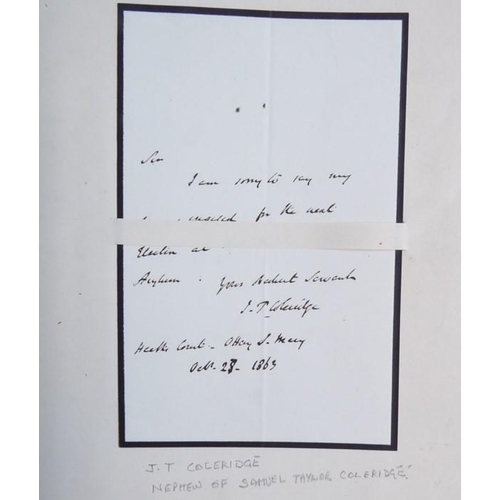 Sir
I am sorry to say my
for the next
Election at
Asylum. Your Obedient Servant
J. T. Coleridge
Heath's Court - Ottery St. Mary
Octr. 28 - 1863
J. T COLERIDGE
NEPHEW OF SAMUEL TAYLOR COLERIDGE.